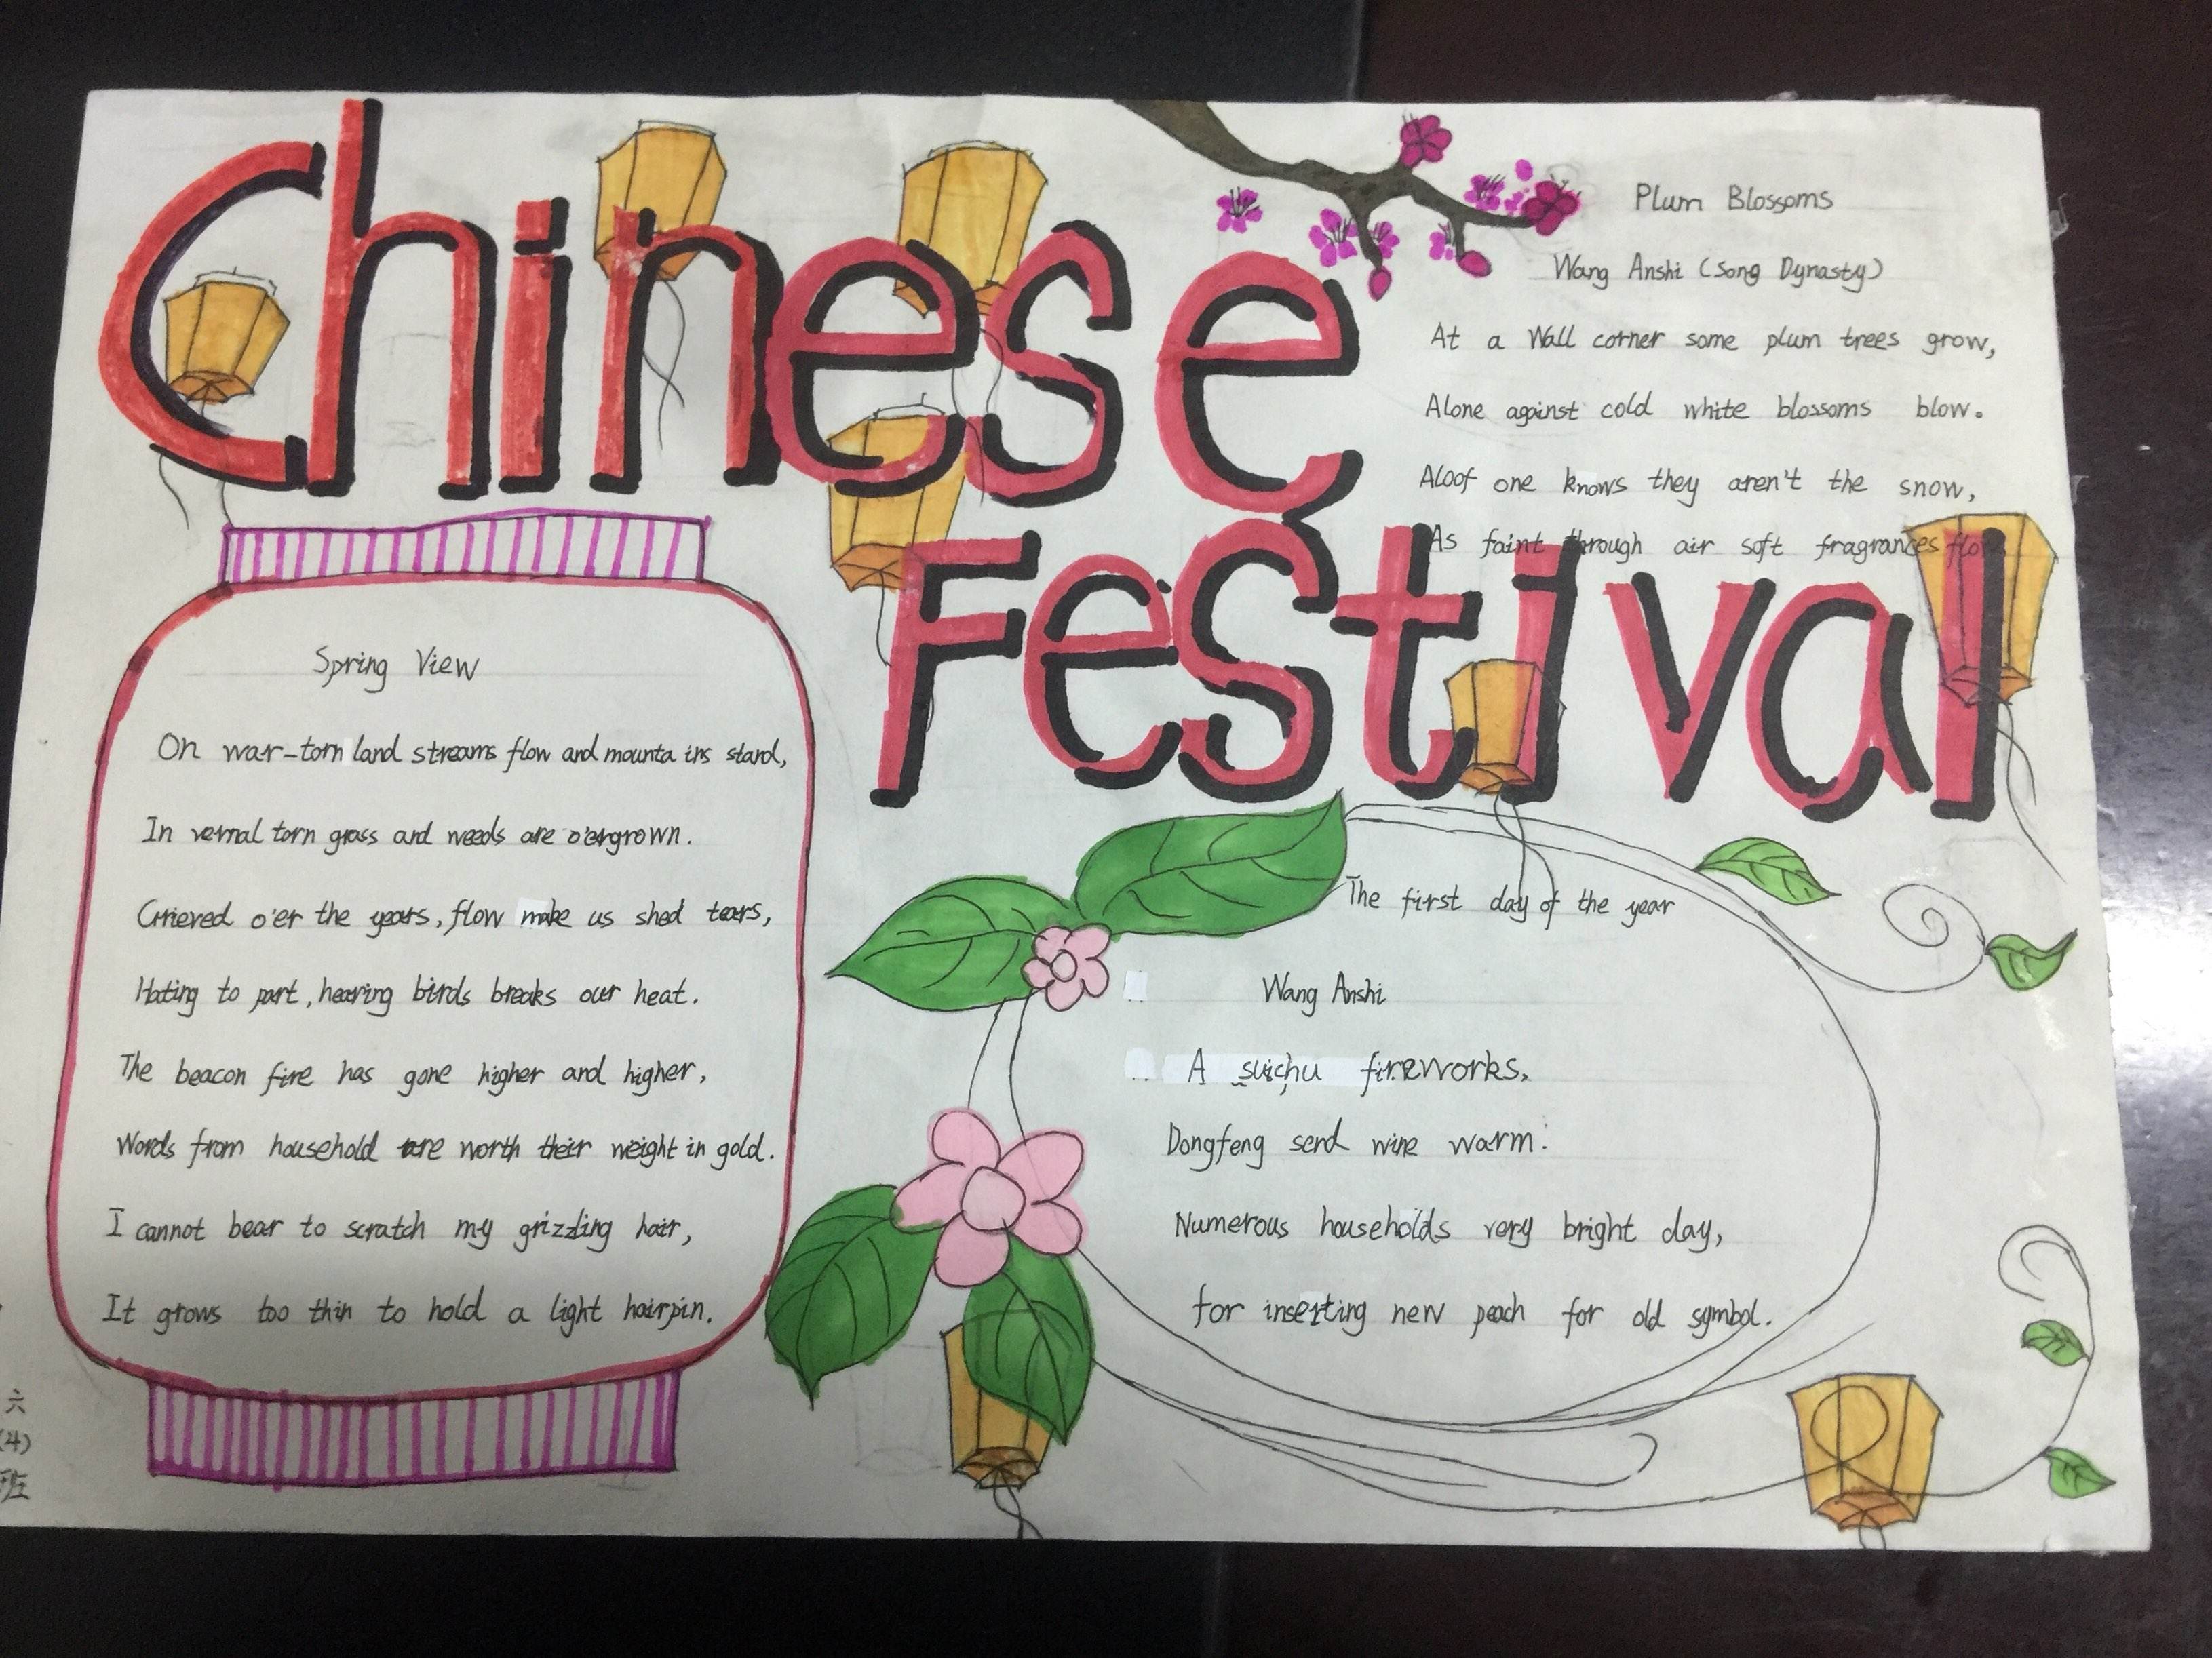 Chinese
Festival
Plum Blossoms
Wang Anshi (Song Dynasty)
At a Wall corner some plum trees grow,
Alone against cold white blossoms blow.
Aloof one knows they aren't the snow,
As faint through air soft fragrances flow
Spring View
On war-torn land streams flow and mounta ins stand,
In vernal torn grass and weeds are o'ergrown.
Grieved o'er the years, flow make us shed tears,
Hating to part, hearing birds breaks our heat.
The beacon fire has gone higher and higher,
Words from household are worth their weight in gold.
I cannot bear to scratch my grizzling hair,
It grows too thin to hold a light hairpin.
The first day of the year
Wang Anshi
A suichu fireworks,
Dongfeng send wine warm:
Numerous households very bright day,
for inserting new peach for old symbol.
六
(4)
班